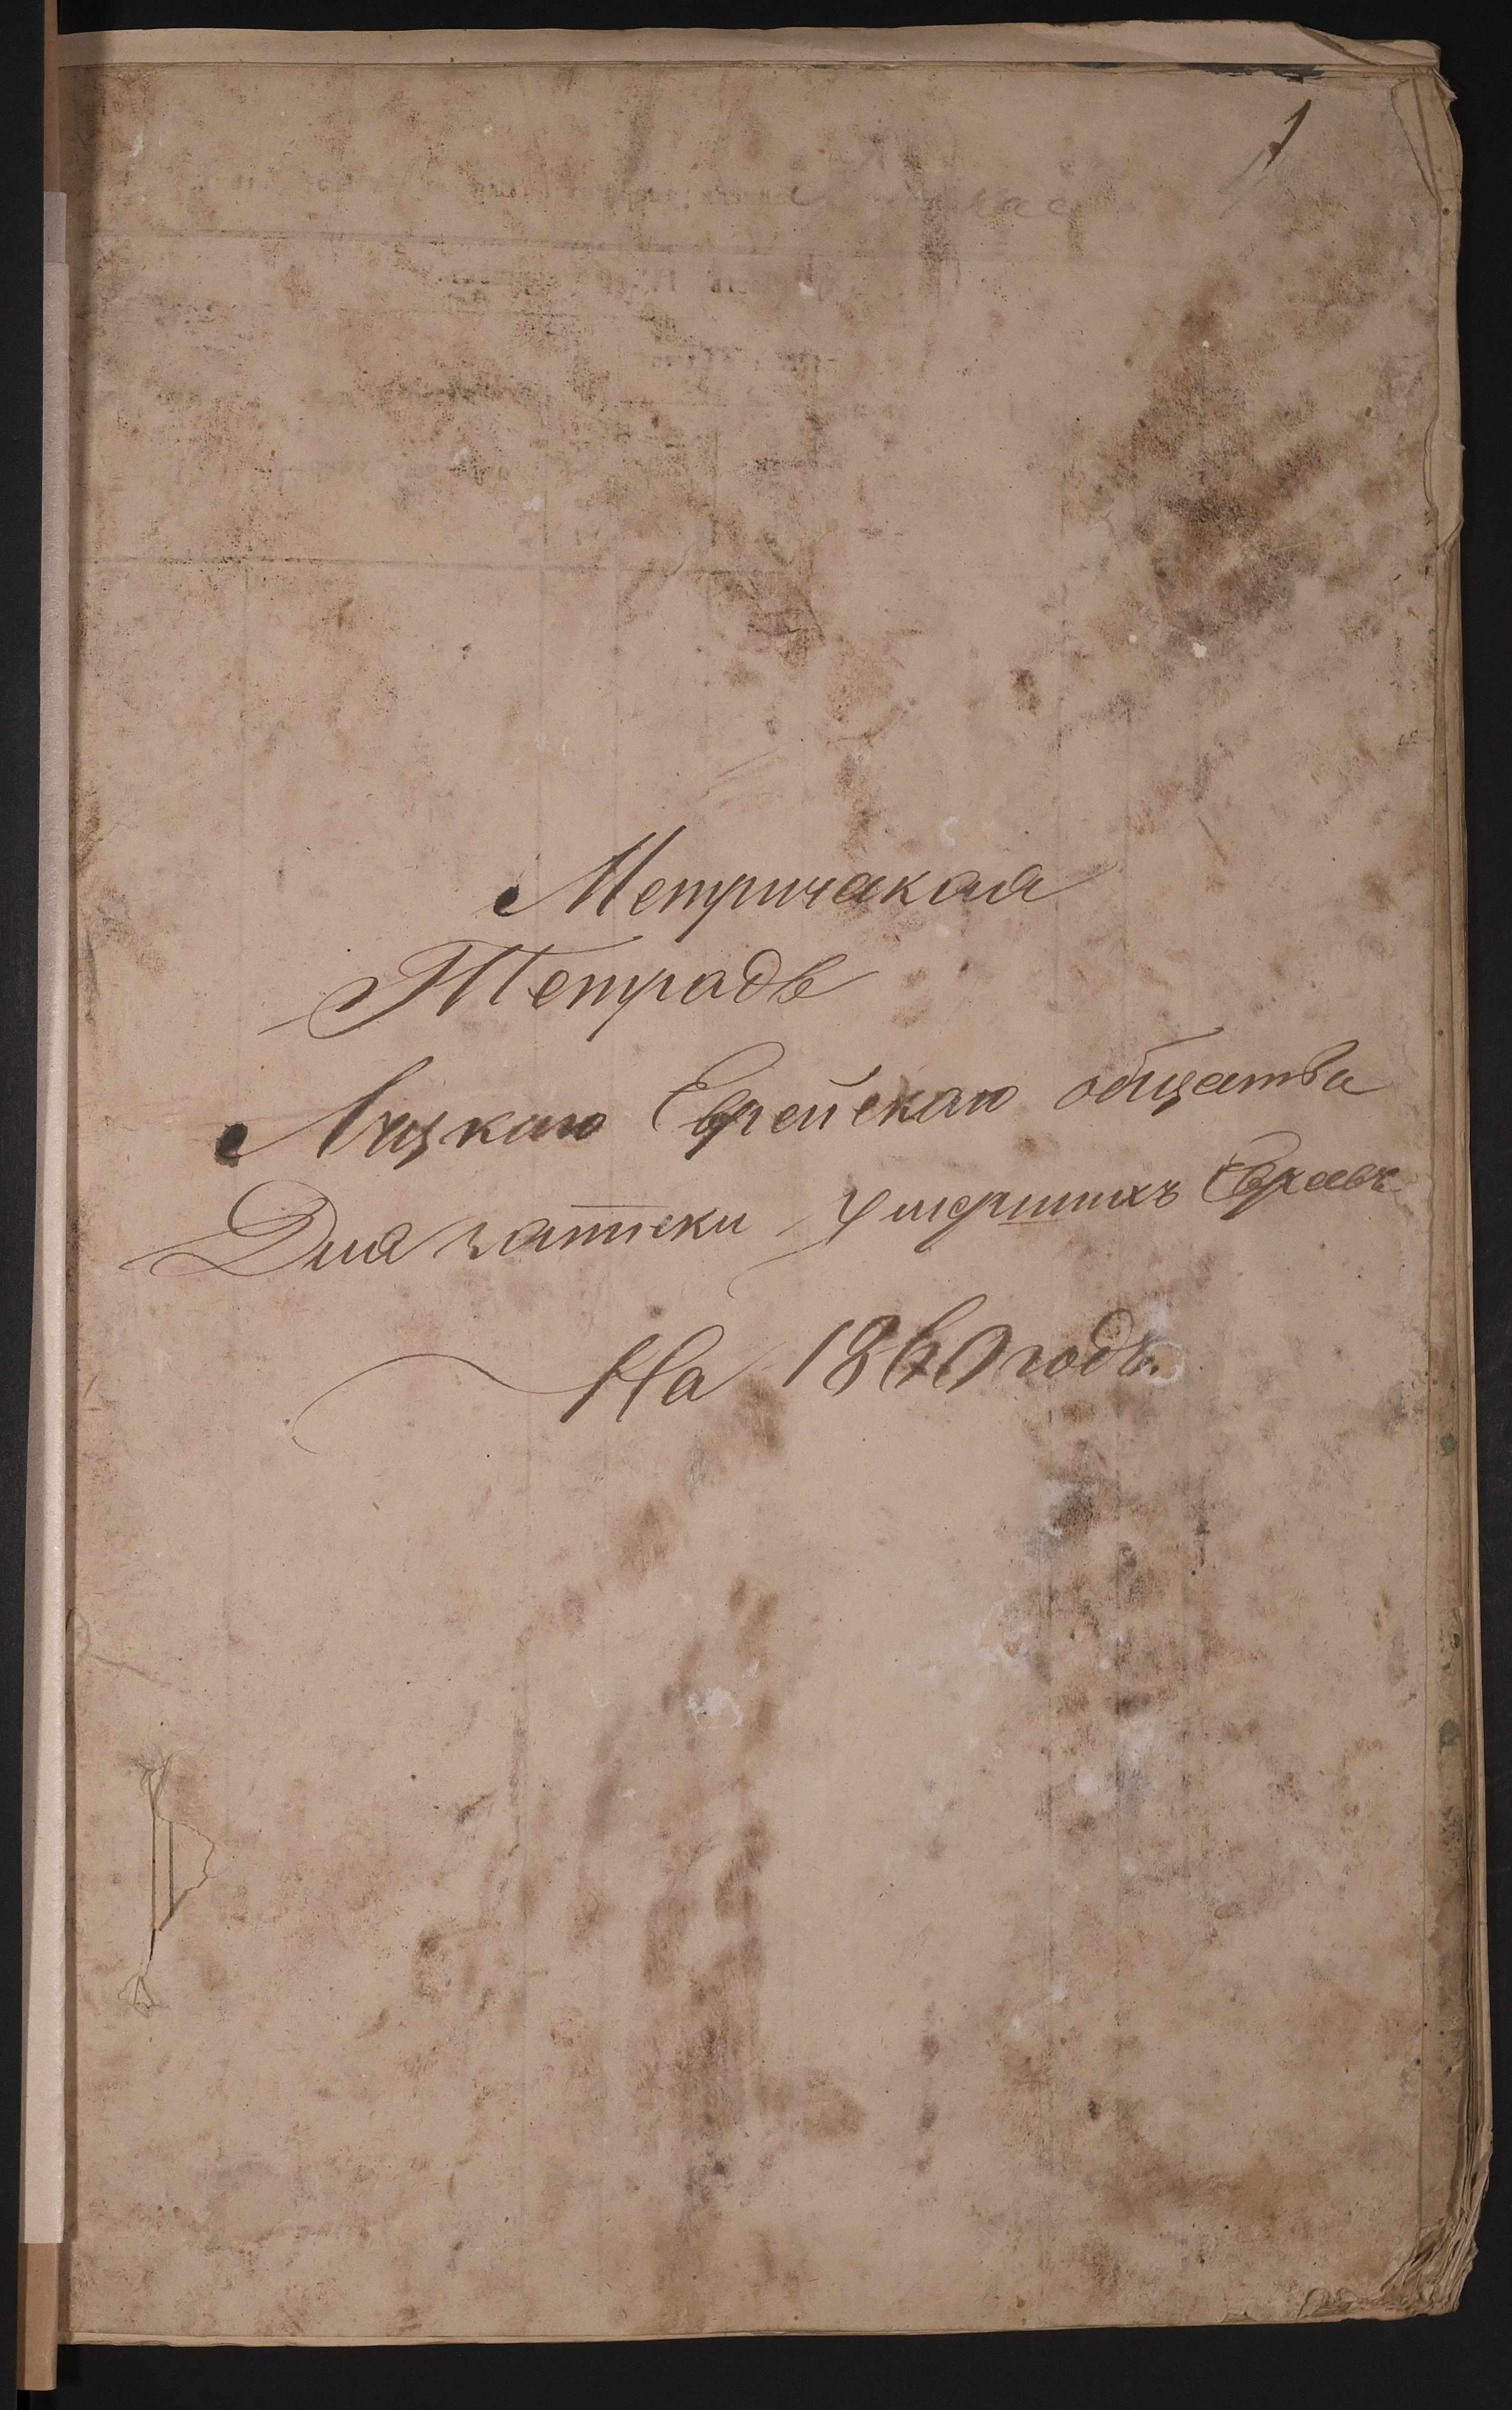 1
Метрическая
Тетрадь
Луцкаго Еврейскаго общества
Для записки умершихъ Евреевъ
На 1860 годъ.